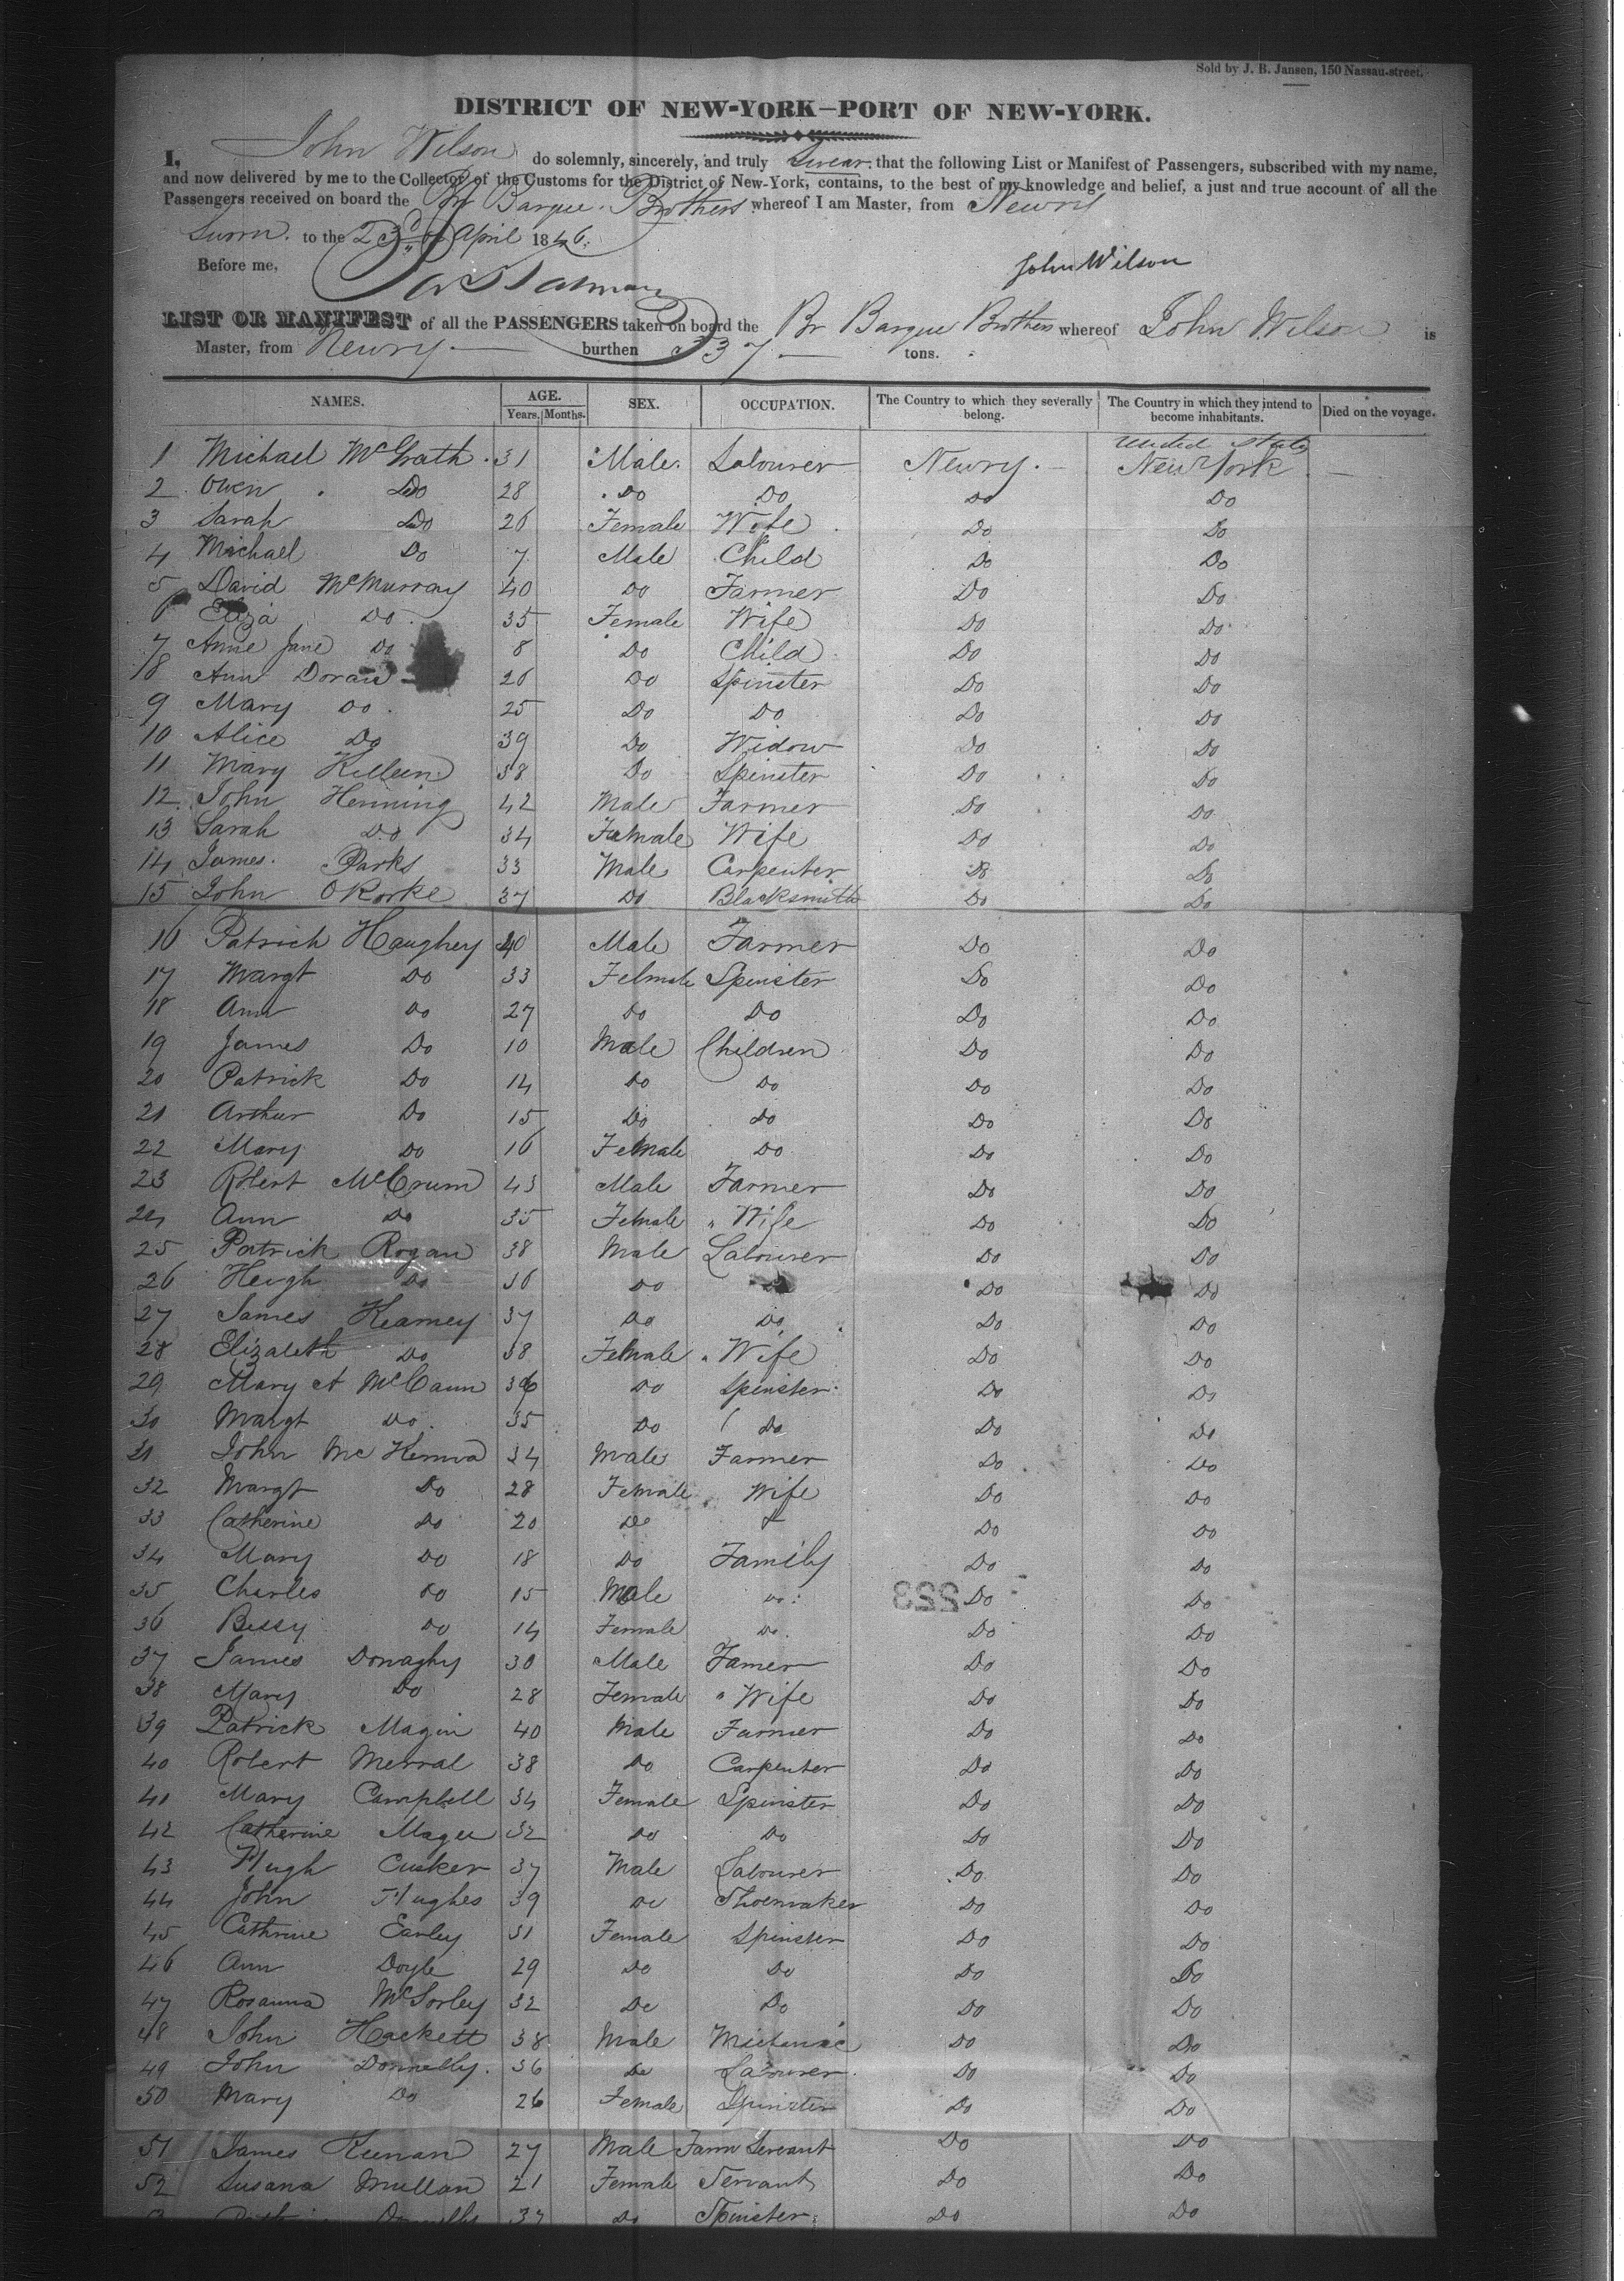 Sold by J. B. Jansen, 150 Nassau-street.
DISTRICT OF NEW-YORK—PORT OF NEW-YORK.
I, John Wilson do solemnly, sincerely, and truly Swear that the following List or Manifest of Passengers, subscribed with my name,
and now delivered by me to the Collector of the Customs for the District of New-York, contains, to the best of my knowledge and belief, a just and true account of all the
Passengers received on board the Br Barque Brothers whereof I am Master, from Newry
Sworn to the 23d of April 1846.
Before me, John Wilson
LIST OR MANIFEST of all the PASSENGERS taken on board the Br Barque Brothers whereof John Wilson is
Master, from Newry burthen 337 tons.
NAMES. AGE. Years. Months. SEX. OCCUPATION. The Country to which they severally belong. The Country in which they intend to become inhabitants. Died on the voyage.
United States
1 Michael McGrath 31 Male Labourer Newry New York
2 Owen Do 28 Do Do Do Do
3 Sarah Do 26 Female Wife Do Do
4 Michael Do 7 Male Child Do Do
5 David McMurray 40 Do Farmer Do Do
6 Eliza Do 35 Female Wife Do Do
7 Anne Jane Do 8 Do Child Do Do
8 Ann Doran 26 Do Spinster Do Do
9 Mary Do 25 Do Do Do Do
10 Alice Do 39 Do Widow Do Do
11 Mary Killeen 38 Do Spinster Do Do
12 John Henning 42 Male Farmer Do Do
13 Sarah Do 34 Female Wife Do Do
14 James Parks 33 Male Carpenter Do Do
15 John ORorke 37 Do Blacksmith Do Do
16 Patrick Haughey 40 Male Farmer Do Do
17 Margt Do 33 Felmale Spinster Do Do
18 Ann Do 27 Do Do Do Do
19 James Do 10 Male Children Do Do
20 Patrick Do 14 Do Do Do Do
21 Arthur Do 15 Do Do Do Do
22 Mary Do 16 Female Do Do Do
23 Robert McCrum 43 Male Farmer Do Do
24 Ann Do 35 Female " Wife Do Do
25 Patrick Rogan 38 Male Labourer Do Do
26 Heugh Do 36 Do Do Do Do
27 James Kearney 37 Do Do Do Do
28 Elizabeth Do 38 Female " Wife Do Do
29 Mary A McCann 36 Do Spinster Do Do
30 Margt Do 35 Do Do Do Do
31 John McKenna 34 Male Farmer Do Do
32 Margt Do 28 Female Wife Do Do
33 Catherine Do 20 Do & Do Do
34 Mary Do 18 Do Family Do Do
35 Charles Do 15 Male Do Do Do
223
36 Bessy Do 14 Female Do Do Do
37 James Donaghy 30 Male Famer Do Do
38 Mary Do 28 Female " Wife Do Do
39 Patrick Magin 40 Male Farmer Do Do
40 Robert Merral 38 Do Carpenter Do Do
41 Mary Campbell 34 Female Spinster Do Do
42 Catherine Magee 32 Do Do Do Do
43 Hugh Cusker 37 Male Labourer Do Do
44 John Hughes 39 Do Shoemaker Do Do
45 Cathrine Earley 31 Female Spinster Do Do
46 Ann Doyle 29 Do Do Do Do
47 Rosanna McSorley 32 Do Do Do Do
48 John Hackett 38 Male Do Do
49 John Donnelly 36 Do Labourer Do Do
50 Mary Do 26 Female Spinster Do Do
51 James Keenan 27 Male Farm Servant Do Do
52 Susana Mullan 21 Female Servant Do Do
37 Do Spinster Do Do